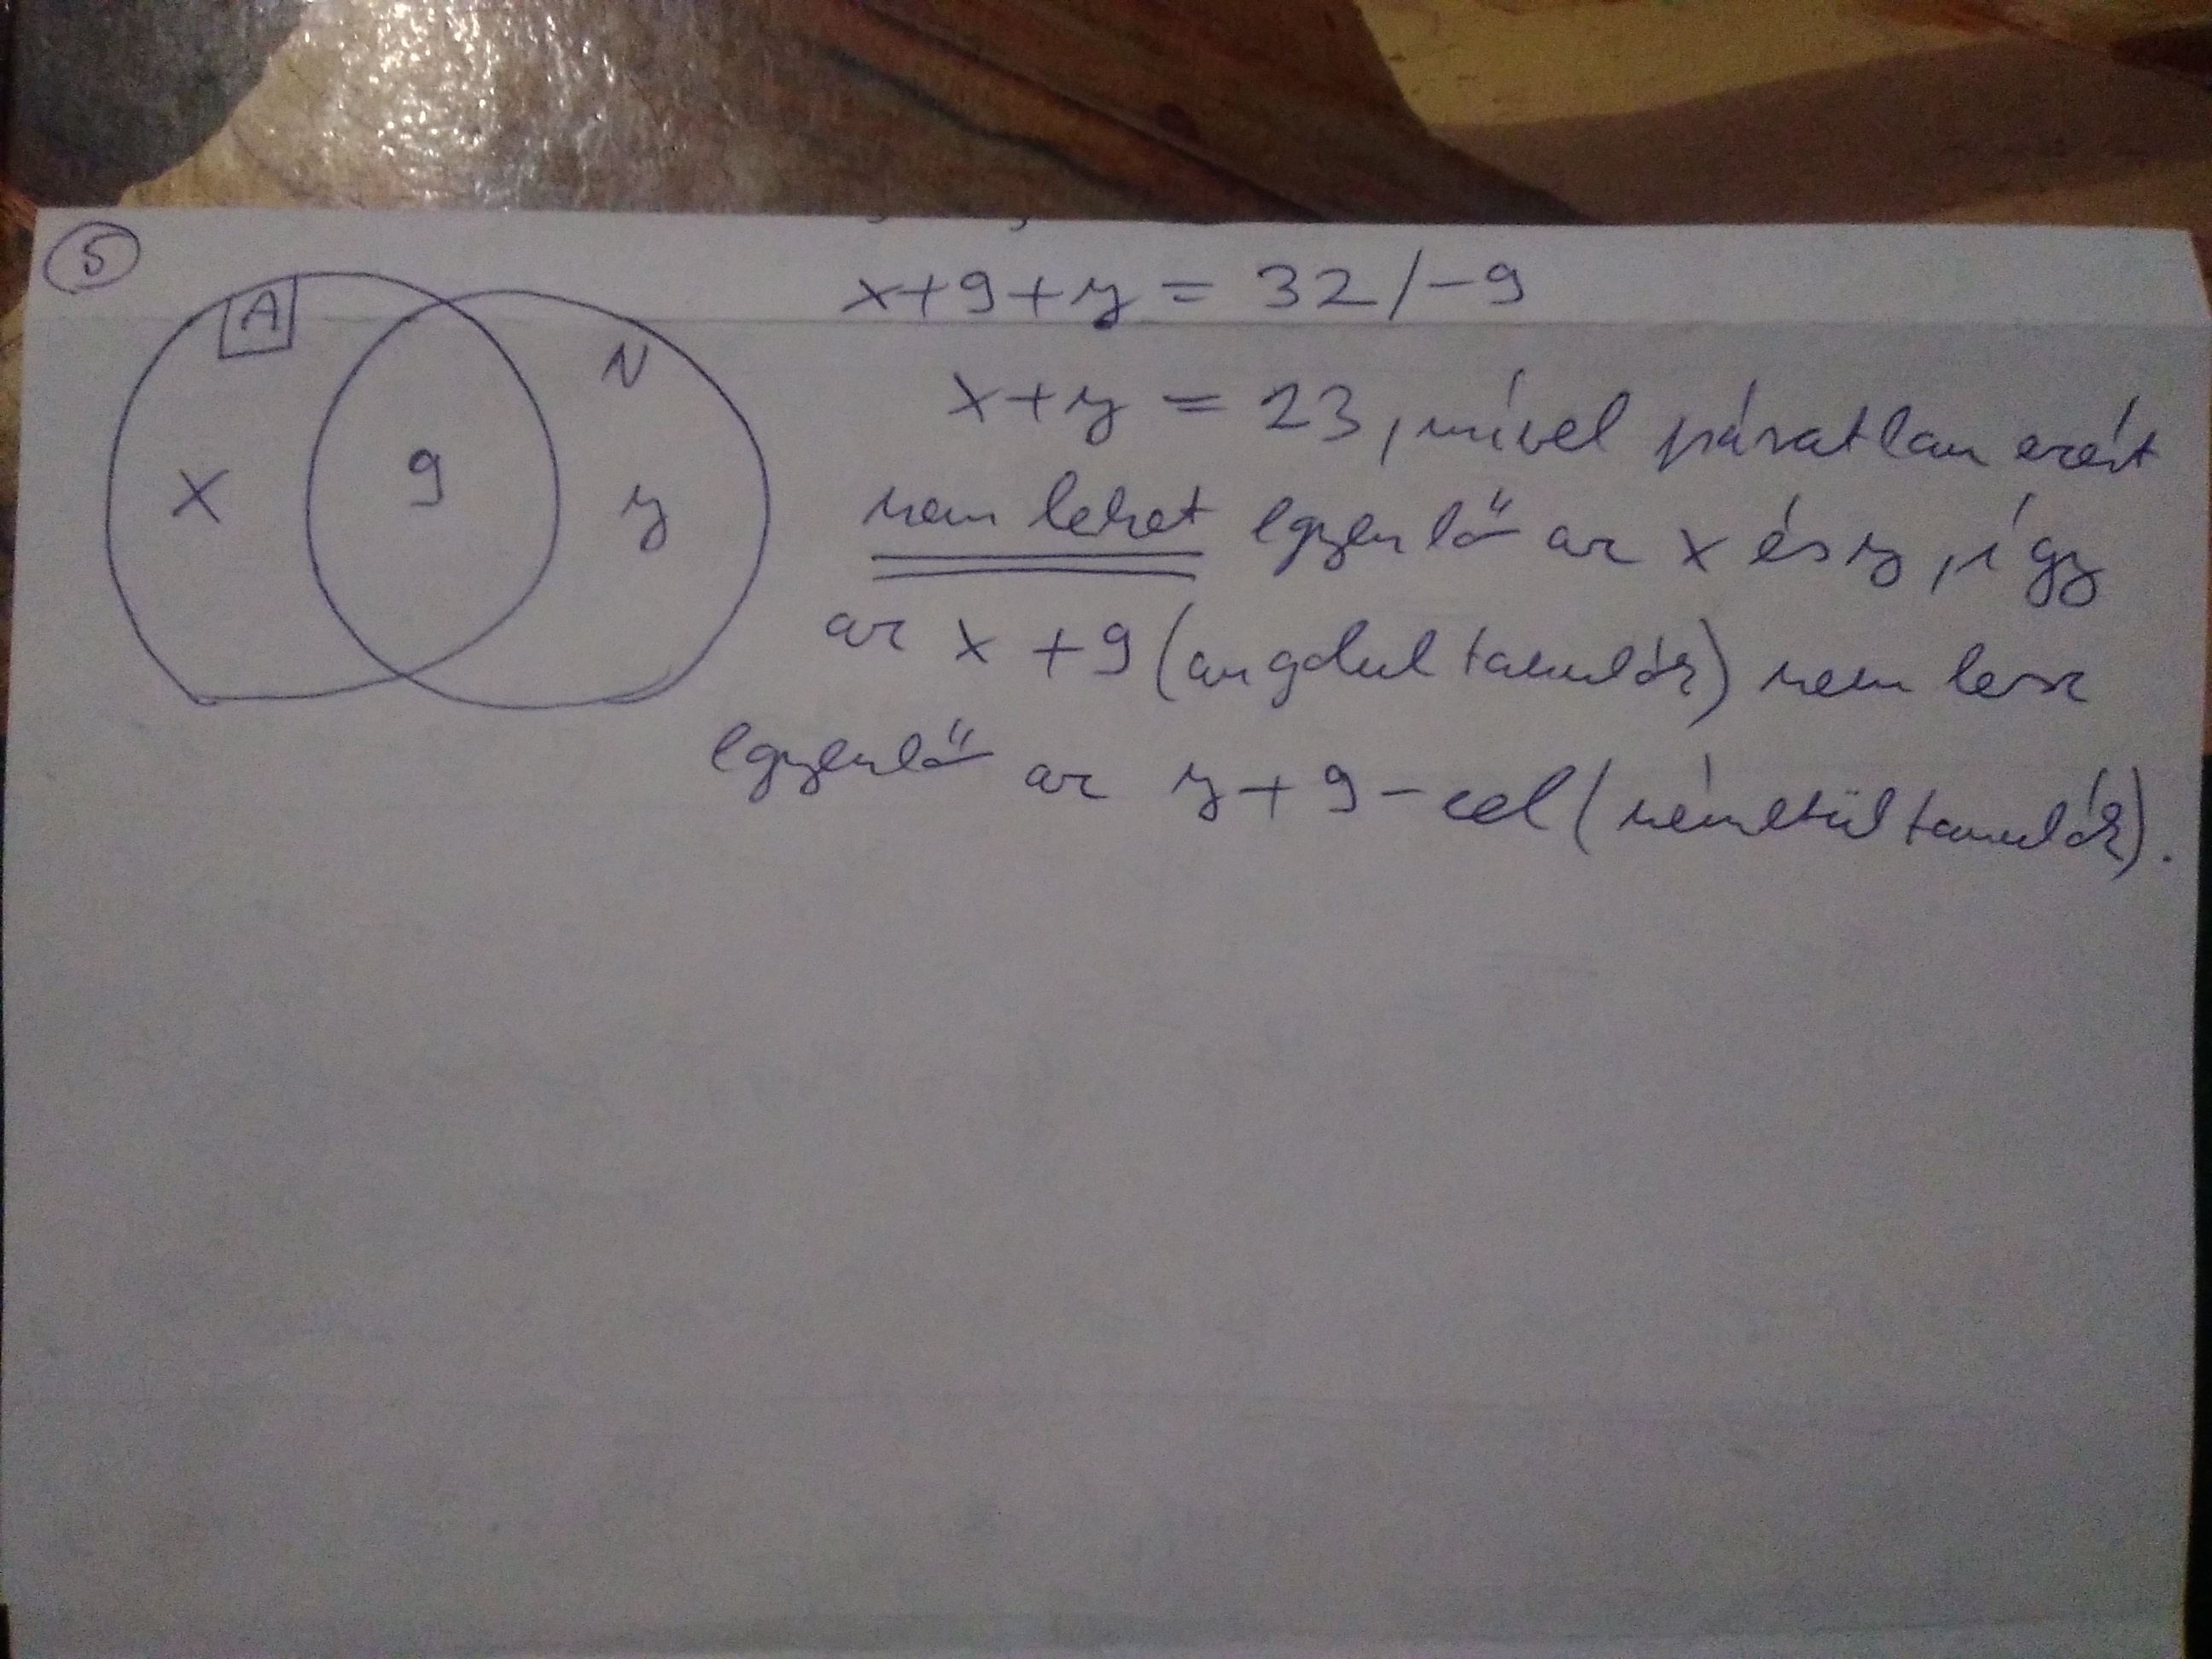 5
A
N
x
9
y
x+9+y = 32 /-9
x+y = 23, mível páratlan ezért
nem lehet egyenlő az x és y, így
az x +9 (angolul tanulók) nem lesz
egyenlő az y+9-cel (németül tanulók).